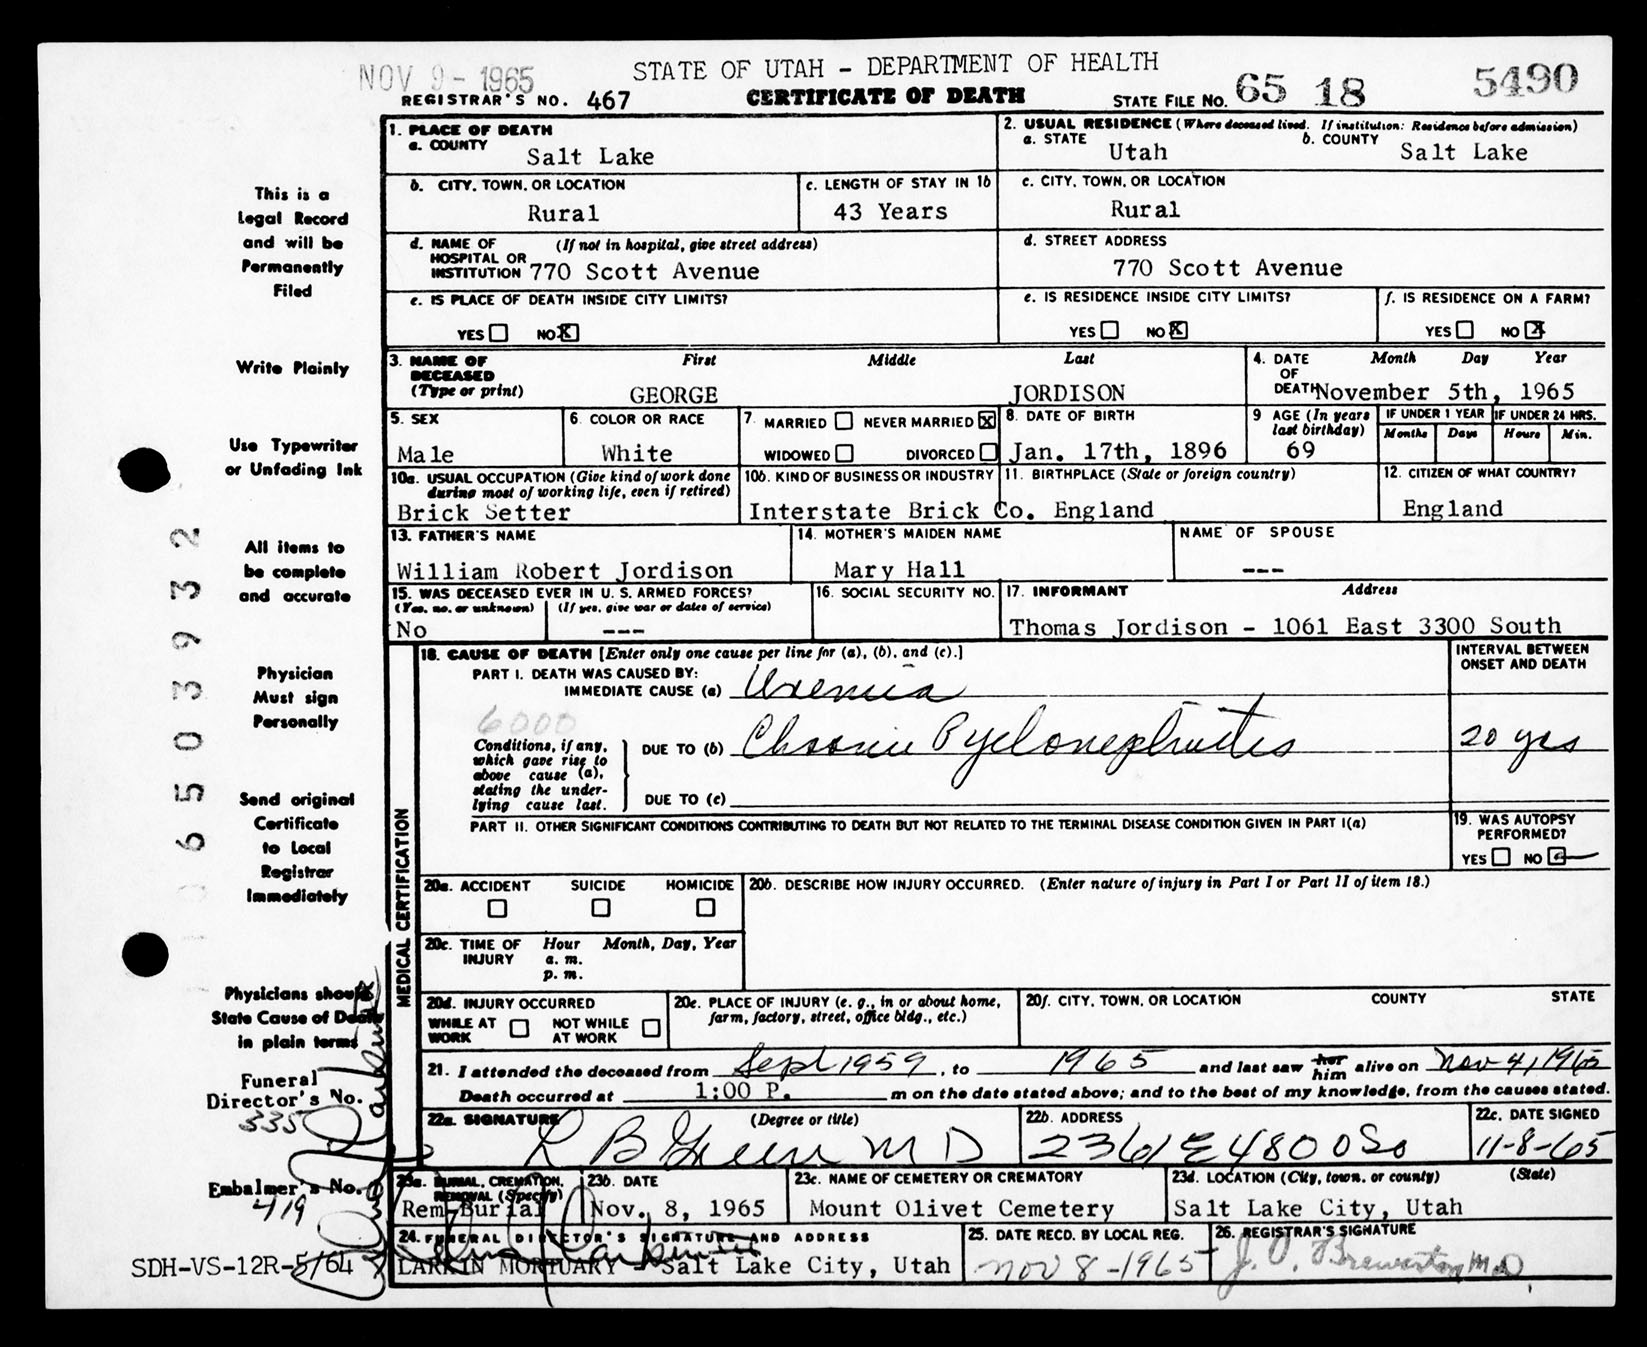 NOV 9 - 1965
STATE OF UTAH - DEPARTMENT OF HEALTH
REGISTRAR'S NO. 467
CERTIFICATE OF DEATH
STATE FILE NO. 65 18 5490
This is a
Legal Record
and will be
Permanently
Filed
Write Plainly
Use Typewriter
or Unfading Ink
All items to
be complete
and accurate
Physician
Must sign
Personally
Send original
Certificate
to Local
Registrar
Immediately
Physicians should
State Cause of Death
in plain terms
Funeral
Director's No.
335
Embalmer's No.
419
SDH-VS-12R-5/64
650 3932
1. PLACE OF DEATH
a. COUNTY
Salt Lake
2. USUAL RESIDENCE (Where deceased lived. If institution: Residence before admission)
a. STATE
Utah
b. COUNTY
Salt Lake
b. CITY, TOWN, OR LOCATION
Rural
c. LENGTH OF STAY IN 1b
43 Years
c. CITY, TOWN, OR LOCATION
Rural
d. NAME OF (If not in hospital, give street address)
HOSPITAL OR
INSTITUTION 770 Scott Avenue
d. STREET ADDRESS
770 Scott Avenue
e. IS PLACE OF DEATH INSIDE CITY LIMITS?
YES NO X
e. IS RESIDENCE INSIDE CITY LIMITS?
YES NO X
f. IS RESIDENCE ON A FARM?
YES NO X
3. NAME OF First Middle Last
DECEASED
(Type or print) GEORGE JORDISON
4. DATE Month Day Year
OF
DEATH November 5th, 1965
5. SEX
Male
6. COLOR OR RACE
White
7. MARRIED NEVER MARRIED X
WIDOWED DIVORCED
8. DATE OF BIRTH
Jan. 17th, 1896
9 AGE (In years
last birthday)
69
IF UNDER 1 YEAR
Months Days
IF UNDER 24 HRS.
Hours Min.
10a. USUAL OCCUPATION (Give kind of work done
during most of working life, even if retired)
Brick Setter
10b. KIND OF BUSINESS OR INDUSTRY
Interstate Brick Co.
11. BIRTHPLACE (State or foreign country)
England
12. CITIZEN OF WHAT COUNTRY?
England
13. FATHER'S NAME
William Robert Jordison
14. MOTHER'S MAIDEN NAME
Mary Hall
NAME OF SPOUSE
---
15. WAS DECEASED EVER IN U. S. ARMED FORCES?
(Yes, no, or unknown) (If yes, give war or dates of service)
No ---
16. SOCIAL SECURITY NO.
17. INFORMANT Address
Thomas Jordison - 1061 East 3300 South
MEDICAL CERTIFICATION
18. CAUSE OF DEATH [Enter only one cause per line for (a), (b), and (c).]
INTERVAL BETWEEN
ONSET AND DEATH
PART I. DEATH WAS CAUSED BY:
IMMEDIATE CAUSE (a) Uremia
6000
Conditions, if any,
which gave rise to
above cause (a),
stating the under-
lying cause last.
DUE TO (b) Chronic Pyelonephritis 20 yrs
DUE TO (c)
PART II. OTHER SIGNIFICANT CONDITIONS CONTRIBUTING TO DEATH BUT NOT RELATED TO THE TERMINAL DISEASE CONDITION GIVEN IN PART I(a)
19. WAS AUTOPSY
PERFORMED?
YES NO
20a. ACCIDENT SUICIDE HOMICIDE
20b. DESCRIBE HOW INJURY OCCURRED. (Enter nature of injury in Part I or Part II of item 18.)
20c. TIME OF Hour Month, Day, Year
INJURY a. m.
p. m.
20d. INJURY OCCURRED
WHILE AT NOT WHILE
WORK AT WORK
20e. PLACE OF INJURY (e. g., in or about home,
farm, factory, street, office bldg., etc.)
20f. CITY, TOWN, OR LOCATION COUNTY STATE
21. I attended the deceased from Sept 1959, to 1965 and last saw her him alive on Nov 4, 1965
Death occurred at 1:00 P. m on the date stated above; and to the best of my knowledge, from the causes stated.
22a. SIGNATURE (Degree or title)
L B Green M D
22b. ADDRESS
2361 E 4800 So
22c. DATE SIGNED
11-8-65
23a. BURIAL, CREMATION,
REMOVAL (Specify)
Rem-Burial
23b. DATE
Nov. 8, 1965
23c. NAME OF CEMETERY OR CREMATORY
Mount Olivet Cemetery
23d. LOCATION (City, town, or county) (State)
Salt Lake City, Utah
24. FUNERAL DIRECTOR'S SIGNATURE AND ADDRESS
LARKIN MORTUARY - Salt Lake City, Utah
25. DATE RECD. BY LOCAL REG.
Nov 8-1965
26. REGISTRAR'S SIGNATURE
J. O. Brewerton MD